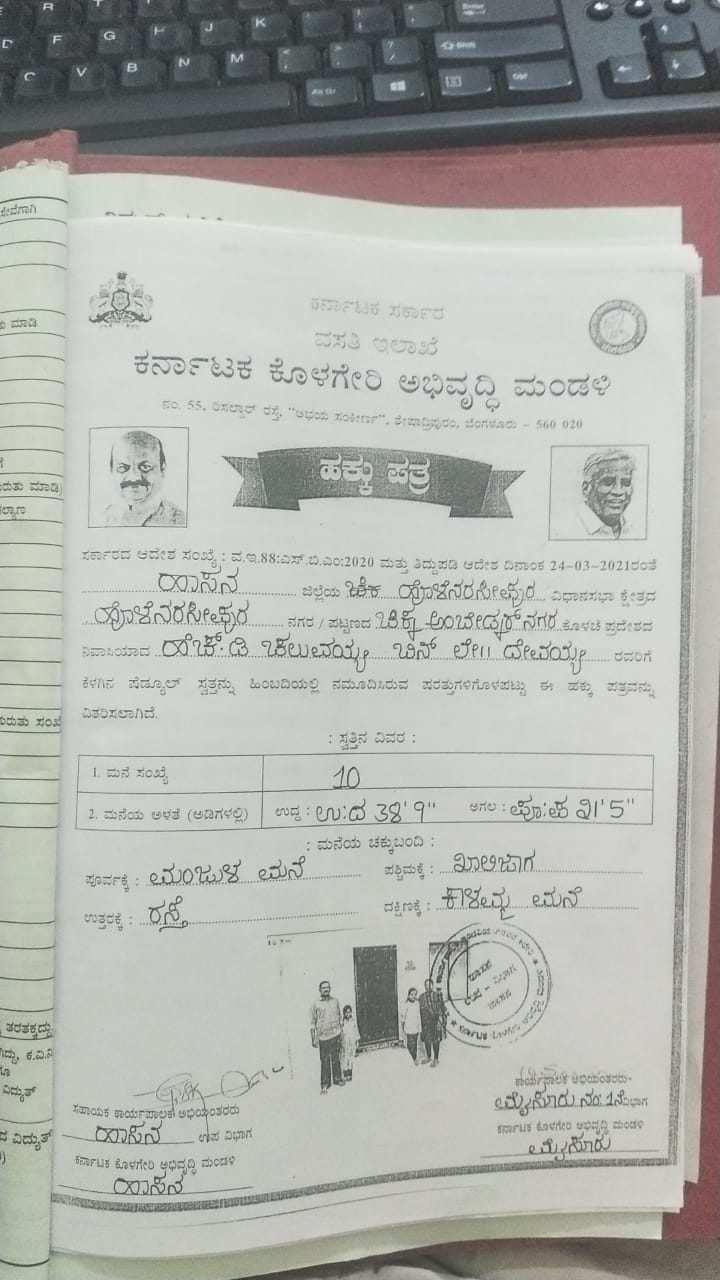 R
T
K
J
H
G
F
D
M
N
B
V
C
Enter
Shift
Alt Gr
Ctrl
ಸೇವೆಗಾಗಿ
ಮಾಡಿ
ಮಾಡಿ)
ಕಲ್ಯಾಣ
ಗುರುತು ಸಂಖ್ಯೆ
ತರತಕ್ಕದ್ದು
ವಿದ್ಯುತ್
ವಿದ್ಯುತ್
ಕರ್ನಾಟಕ ಸರ್ಕಾರ
ವಸತಿ ಇಲಾಖೆ
ಕರ್ನಾಟಕ ಕೊಳಗೇರಿ ಅಭಿವೃದ್ಧಿ ಮಂಡಳಿ
ನಂ. 55, ರಿಸಲ್ದಾರ್ ರಸ್ತೆ, "ಅಭಯ ಸಂಕೀರ್ಣ", ಶೇಷಾದ್ರಿಪುರಂ, ಬೆಂಗಳೂರು - 560 020
ಹಕ್ಕು ಪತ್ರ
ಸರ್ಕಾರದ ಆದೇಶ ಸಂಖ್ಯೆ : ವ.ಇ.88:ಎಸ್.ಬಿ.ಎಂ:2020 ಮತ್ತು ತಿದ್ದುಪಡಿ ಆದೇಶ ದಿನಾಂಕ 24-03-2021ರಂತೆ
ಹಾಸನ ಜಿಲ್ಲೆಯ ಹೊಳೆನರಸೀಪುರ ವಿಧಾನಸಭಾ ಕ್ಷೇತ್ರದ
ಹೊಳೆನರಸೀಪುರ ನಗರ / ಪಟ್ಟಣದ ಚಿಕ್ಕ ಅಂಬೇಡ್ಕರ್ ನಗರ ಕೊಳಚೆ ಪ್ರದೇಶದ
ನಿವಾಸಿಯಾದ ಹೆಚ್.ಡಿ ಚಲುವಯ್ಯ ಬಿನ್ ಲೇ|| ದೇವಯ್ಯ ರವರಿಗೆ
ಕೆಳಗಿನ ಷೆಡ್ಯೂಲ್ ಸ್ವತ್ತನ್ನು ಹಿಂಬದಿಯಲ್ಲಿ ನಮೂದಿಸಿರುವ ಷರತ್ತುಗಳಿಗೊಳಪಟ್ಟು ಈ ಹಕ್ಕು ಪತ್ರವನ್ನು
ವಿತರಿಸಲಾಗಿದೆ.
: ಸ್ವತ್ತಿನ ವಿವರ :
1. ಮನೆ ಸಂಖ್ಯೆ 10
2. ಮನೆಯ ಅಳತೆ (ಅಡಿಗಳಲ್ಲಿ) ಉದ್ದ : ಉ:ದ 38'9" ಅಗಲ : ಪೂ:ಪ 21'5"
: ಮನೆಯ ಚಕ್ಕುಬಂದಿ :
ಪೂರ್ವಕ್ಕೆ : ಮಂಜುಳ ಮನೆ ಪಶ್ಚಿಮಕ್ಕೆ : ಖಾಲಿಜಾಗ
ಉತ್ತರಕ್ಕೆ : ರಸ್ತೆ ದಕ್ಷಿಣಕ್ಕೆ : ಕಾಳಮ್ಮ ಮನೆ
ಹಾಸನ
ಉಪ - ವಿಭಾಗ
ಹಾಸನ
ಸಹಾಯಕ ಕಾರ್ಯಪಾಲಕ ಅಭಿಯಂತರರು
ಹಾಸನ ಉಪ ವಿಭಾಗ
ಕರ್ನಾಟಕ ಕೊಳಗೇರಿ ಅಭಿವೃದ್ಧಿ ಮಂಡಳಿ
ಹಾಸನ
ಕಾರ್ಯಪಾಲಕ ಅಭಿಯಂತರರು-
ಮೈಸೂರು ನಂ.1ನೇ ವಿಭಾಗ
ಕರ್ನಾಟಕ ಕೊಳಗೇರಿ ಅಭಿವೃದ್ಧಿ ಮಂಡಳಿ
ಮೈಸೂರು